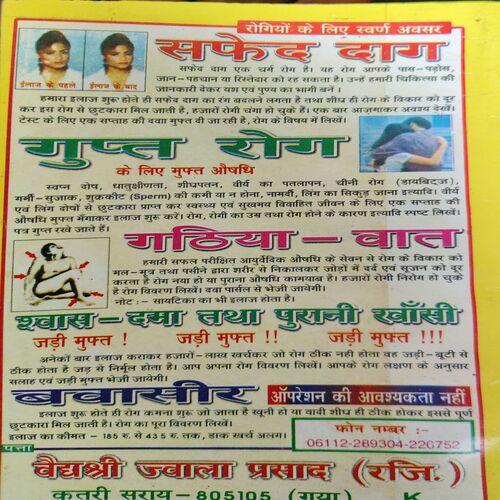 रोगियों के लिए स्वर्ण अवसर
सफेद दाग
इलाज के पहले
इलाज के बाद
सफेद दाग एक चर्म रोग है। यह रोग आपके पास-पड़ोस,
जान-पहचान या रिस्तेदार को रह सकता है। उन्हें हमारी चिकित्सा की
जानकारी देकर यश एवं पुण्य का भागी बनें ।
हमारा इलाज शुरू होते ही सफेद दाग का रंग बदलने लगता है तथा शीघ्र ही रोग के विकार को दूर
कर इस रोग से छुटकारा मिल जाती है, हजारों रोगी चंगा हो चुके हैं। एक बार आजमाकर अवश्य देखें।
टेस्ट के लिए एक सप्ताह की दवा मुफ्त दी जा रही है, रोग के विषय में लिखें।
गुप्त रोग
के लिए मुफ्त औषधि
स्वप्न दोष, धातुक्षीणता, शीघ्रपतन, वीर्य का पतलापन, चीनी रोग (डायबिट्ज),
गर्मी-सुजाक, शुक्रकीट (Sperm) की कमी या न होना, नामर्दी, लिंग का सिकुड़ जाना इत्यादि। वीर्य
एवं लिंग दोषों से छुटकारा प्राप्त कर स्वस्थ्य एवं सुखमय विवाहित जीवन के लिए एक सप्ताह की
औषधि मुफ्त मँगाकर इलाज शुरू करें। रोग, रोगी का उम्र तथा रोग होने के कारण इत्यादि स्पष्ट लिखें।
पत्र गुप्त रखे जाते हैं।
गठिया – वात
हमारी सफल परीक्षित आयुर्वेदिक औषधि के सेवन से रोग के विकार को
मल-मुत्र तथा पसीने द्वारा शरीर से निकालकर जोड़ों में दर्द एवं सूजन को दूर
करता है रोग नया हो या पुराना औषधि कामयाब है। हजारों रोगी निरोग हो चुके
हैं रोग विवरण लिखें। दवा पार्सल से भेजी जायेगी।
नोट :- सायटिका का भी इलाज होता है।
श्वास-दमा तथा पुरानी खाँसी
जड़ी मुफ्त ! जड़ी मुफ्त !! जड़ी मुफ्त !!!
अनेकों बार इलाज कराकर हजारों-लाख खर्चकर जो रोग ठीक नहीं होता वह जड़ी-बूटी से
ठीक होता है जड़ से निर्मूल होता है। आप अपना रोग विवरण लिखें। आपके रोग लक्षण के अनुसार
सलाह एवं जड़ी मुफ्त भेजी जायेगी।
बवासीर ऑपरेशन की आवश्यकता नहीं
इलाज शुरू होते ही रोग कमना शुरू जो जाता है खूनी हो या वादी शीघ्र ही ठीक होकर इससे पूर्ण
छुटकारा मिल जाती है। रोग का पूरा विवरण लिखें।
इलाज का कीमत – 185 रु. से 435 रु. तक, डाक खर्च अलग।
फोन नम्बर :-
06112-289304-226752
पत्ता
वैद्यश्री ज्वाला प्रसाद (रजि.)
कतरी सराय-805105 (गया) K